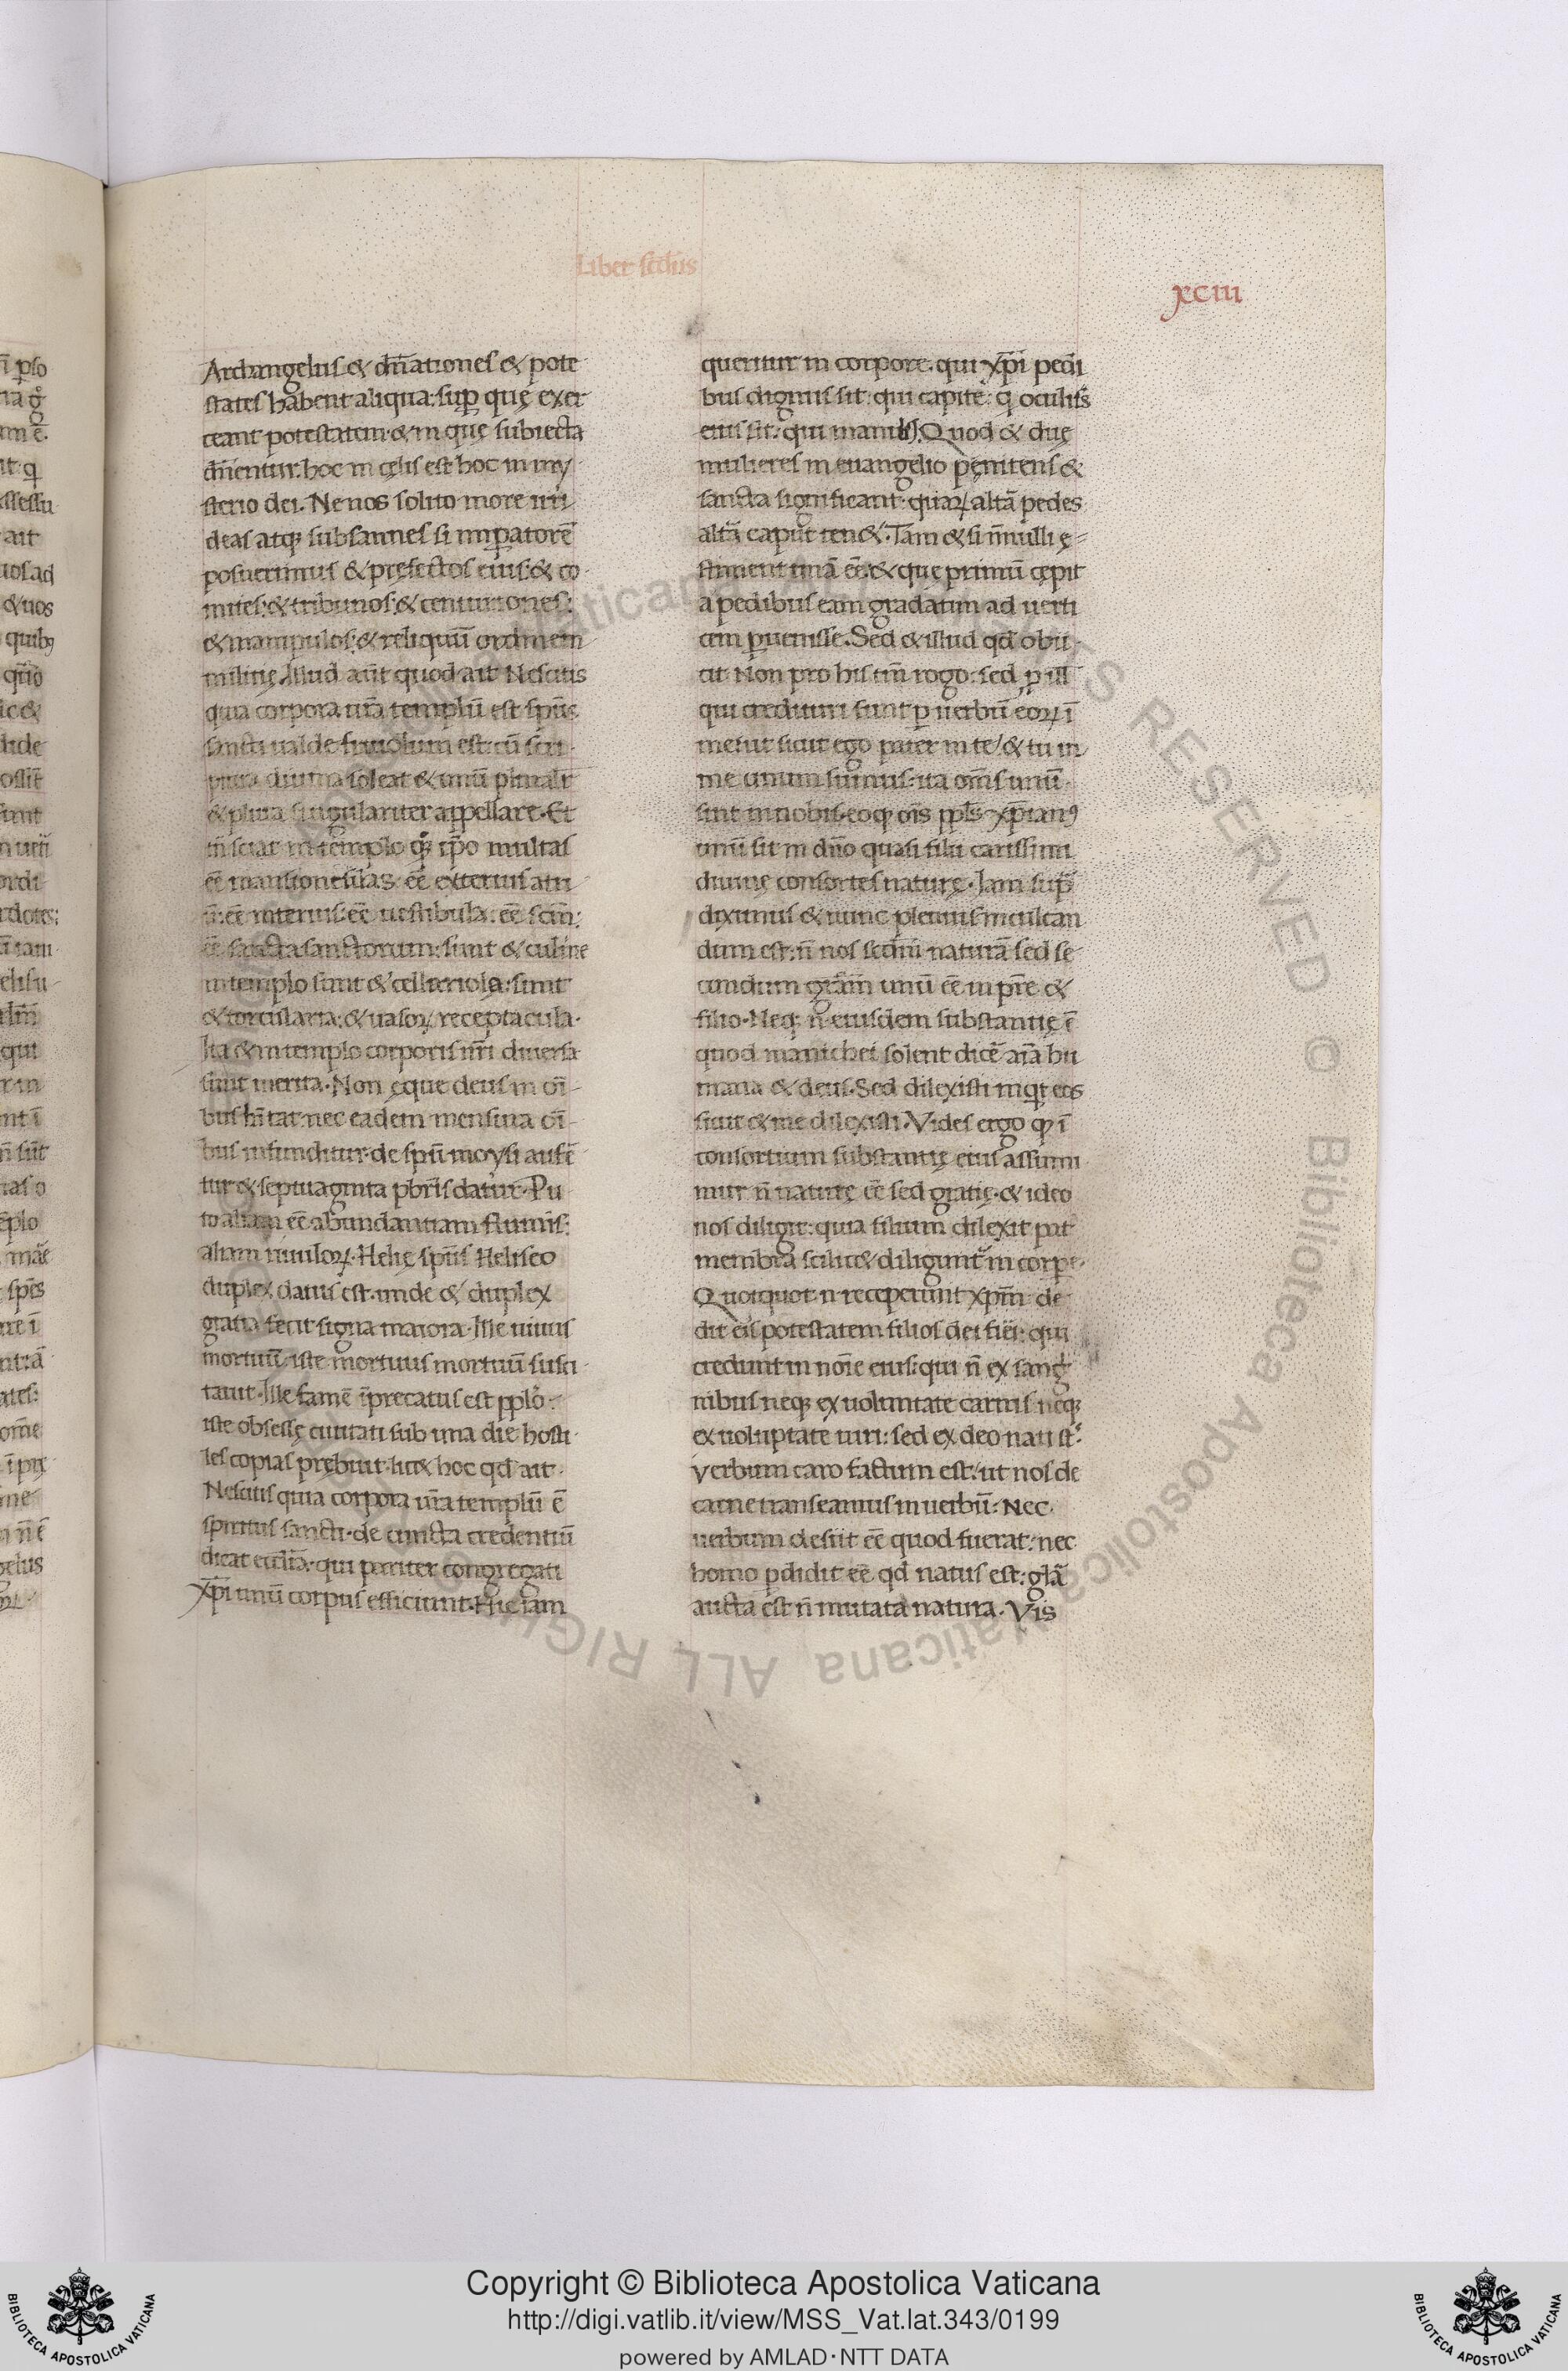 Liber scd̄us
xciii
Archangelus & dn̄ationes & pote
states habent aliqua: suꝑ quę exer
ceant potestatem· & in quę subiecta
dn̄entur. hoc in cęlis est hoc in my
sterio dei. Ne nos solito more irri
deas atqꝫ subsannes si imꝑatorē
posuerimus & pręfectos eius: & co
mites: & tribunos: & centuriones:
& manipulos: & reliquū ordinem
militię. Illud aūt quod ait Nescitis
quia corpora ur̄a templū est spūs
sancti ualde friuolum est: cū scri
ptura diuina soleat & unū pluralr̄
& plura singulariter appellare. Et
tn̄ sciat in templo qꝫ ip̄o multas
eē mansiones: eē exterius atri
ū: eē interius: eē uestibula: eē scm̄:
eē sancta sanctorum: sunt & culine
in templo sunt & cellariola: sunt
& torcularia: & uasoꝝ receptacula·
Ita & in templo corporis nr̄i diuersa
sunt merita. Non ęque deus in oī
bus hītat: nec eadem mensura oī
bus infunditur· de spū moysi aufē
tur & septuaginta pb̄ris datur. Pu
to aliam eē abundantiam flumīs:
aliam riuuloꝝ. Helię spūs Heliseo
duplex datus est. unde & duplex
gratia fecit signa maiora. Ille uiuus
mortuū: iste mortuus mortuū susci
tauit. Ille famē īprecatus est pplo:
iste obsessę ciuitati sub una die hosti
les copias prębuit· lic& hoc qd̄ ait·
Nescitis quia corpora ur̄a templū ē
spiritus sancti· de cuncta credentiū
dicat eccl̄ia· qui pariter congregati
xp̄i unū corpus efficiunt. Hic iam
queritur in corpore. qui xp̄i pedi
bus dignus sit: qui capite: q̇ oculis
eius sit: qui manibꝫ. Quod & duę
mulieres in euangelio pęnitens &
sancta significant· quaꝝ altā pedes
altā caput ten&. Tam & si n̄nulli ę
stiment unā eē: & que primū cępit
a pedibus eam gradatim ad uerti
cem ꝑuenisse. Sed & illud qd̄ obii
cit Non pro his tm̄ rogo: sed ꝑ ill̄
qui credituri sunt ꝑ uerbū eoꝝ ī
me: ut sicut ego pater in te/ & tu in
me unum sumus: ita om̄s unū
sint in nobis· eoqꝫ oīs ppls xp̄ianꝰ
unū sit in dn̄o quasi filii carissimi
diuinę consortes naturę. Iam supͣ
diximus & nunc plenius inculcan
dum est: n̄ nos scdm̄ naturā sed se
cundum grām unū eē in pr̄e &
filio. Neqꝫ n̄ eiusdem substantię ē
quod manichei solent dicē aīa hu
mana & deus. Sed dilexisti inqt eos
sicut & me dilexisti. Vides ergo qꝫ ī
consortium substantię eius assumi
mur n̄ naturę eē sed gratię· & ideo
nos diligit: quia filium dilexit pat̄
membra scilic& diliguntr̄ in corpe
Quotquot n̄ receperunt xpm̄ de
dit eis potestatem filios dei fiēi: qui
credunt in noīe eius: qui n̄ ex sang
nibus neqꝫ ex uoluntate carnis neqꝫ
ex uoluptate uiri: sed ex deo nati st̄:
Verbum caro factum est: ut nos de
carne transeamus in uerbū: Nec
uerbum desiit eē quod fuerat: nec
homo ꝑdidit eē qd̄ natus est: glā
aucta est n̄ mutata natura. Vis
Copyright © Biblioteca Apostolica Vaticana
http://digi.vatlib.it/view/MSS_Vat.lat.343/0199
powered by AMLAD·NTT DATA